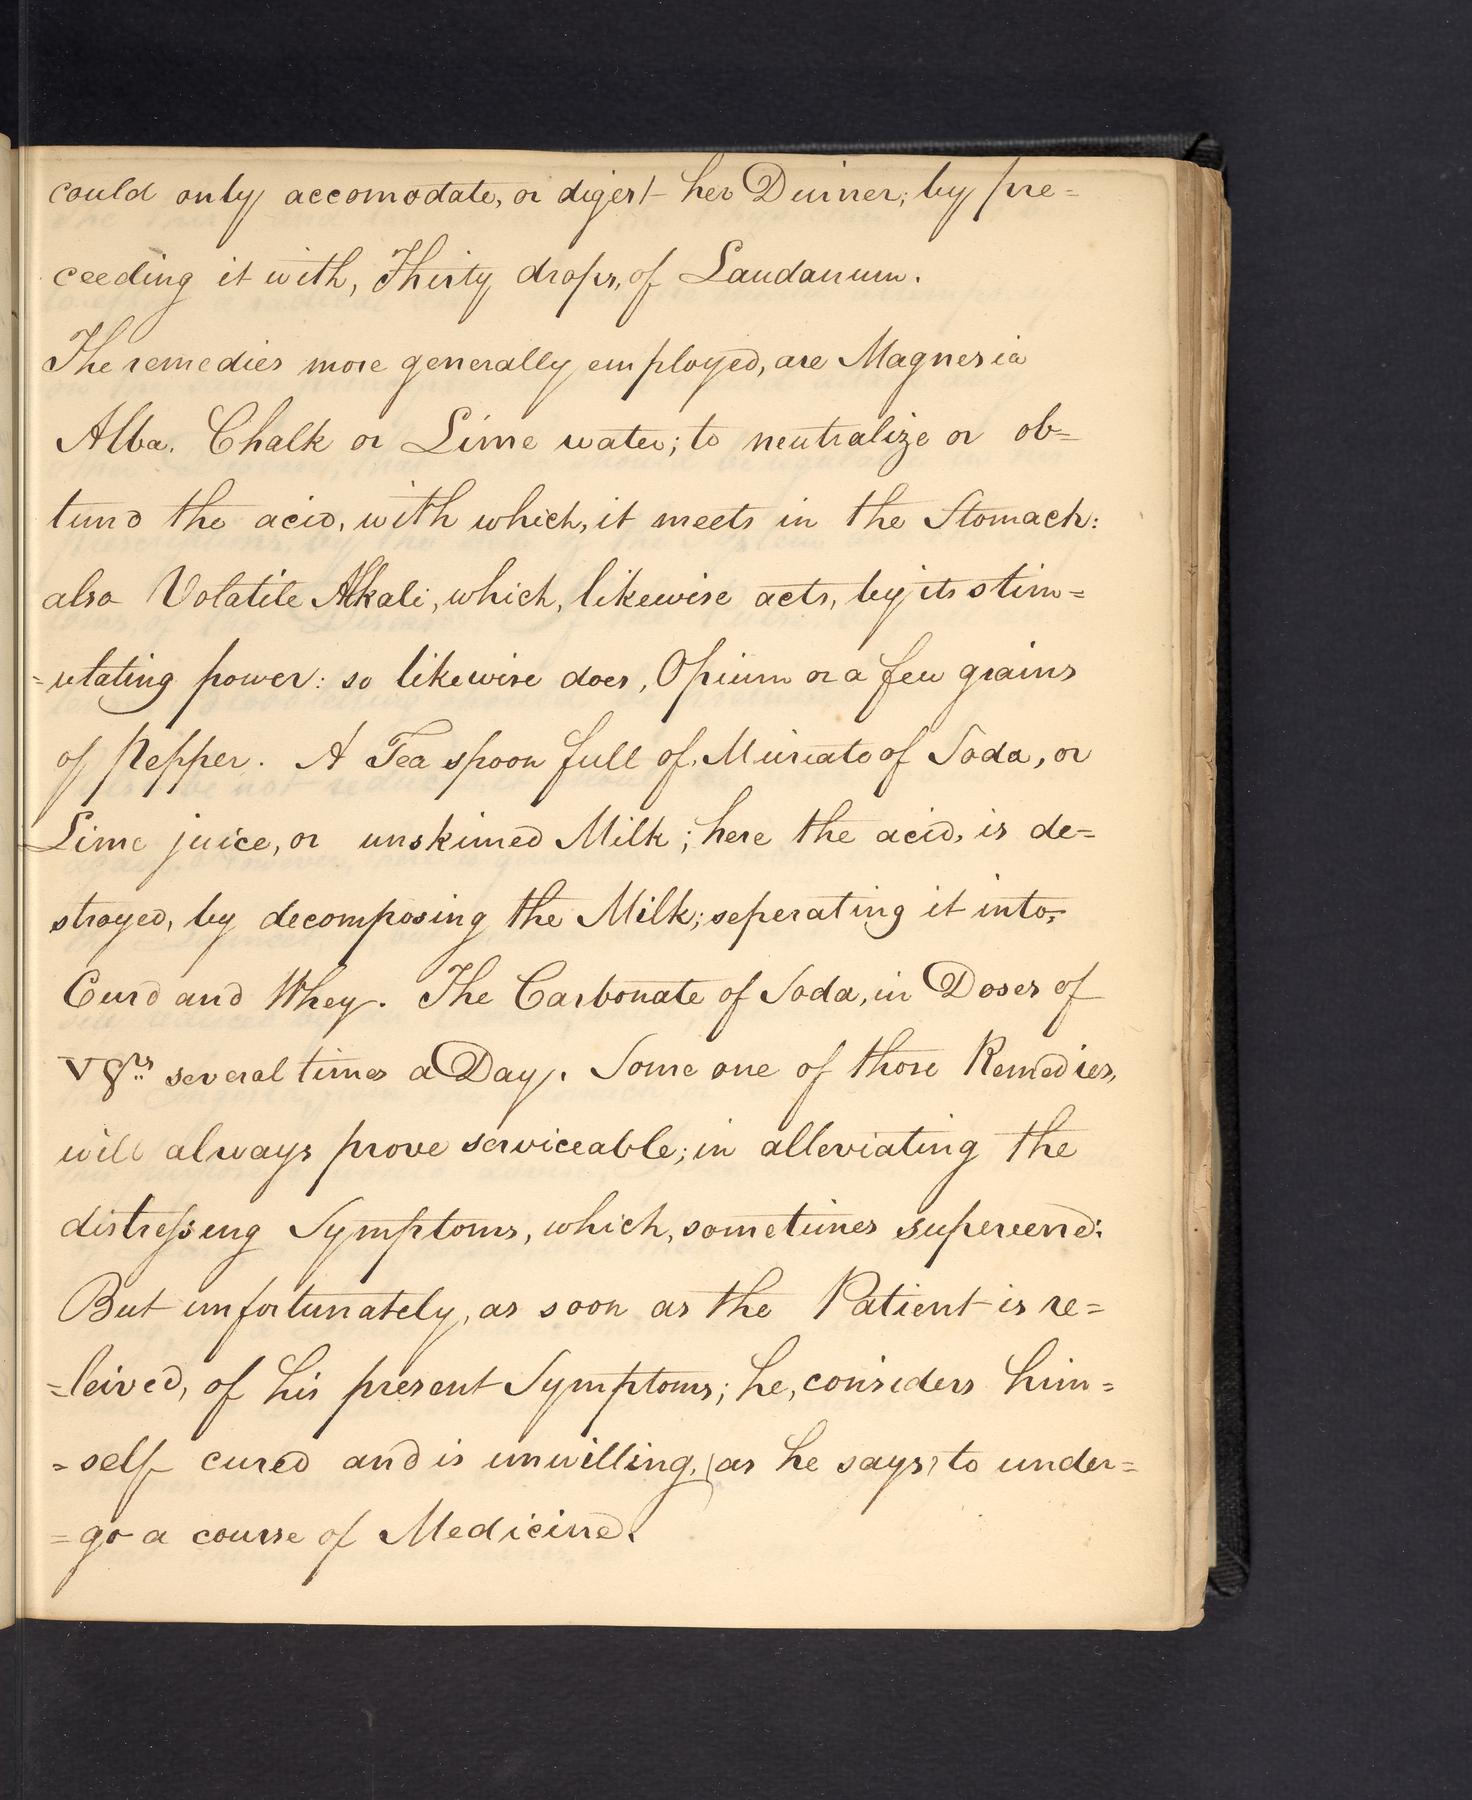 could only accomodate, or digest her Dinner; by pre=
ceeding it with, Thirty drops, of Laudanum.
The remedies more generally employed, are Magnesia
Alba. Chalk or Lime water; to neutralize or ob=
tund the acid, with which, it meets in the Stomach:
also Volatile Alkali, which, likewise acts, by its stim=
=ulating power: so likewise does, Opium or a few grains
of Pepper. A Tea spoon full of, Muriate of Soda, or
Lime juice, or unskimed Milk; here the acid, is de=
stroyed, by decomposing the Milk; seperating it into,
Curd and Whey. The Carbonate of Soda, in Doses of
V grs several times a Day. Some one of those Remedies,
will always prove serviceable; in alleviating the
distressing Symptoms, which, sometimes supervene:
But unfortunately, as soon as the Patient is re=
=leived, of his present Symptoms; he, considers him=
=self cured and is unwilling, (as he says) to under=
=go a course of Medicine.